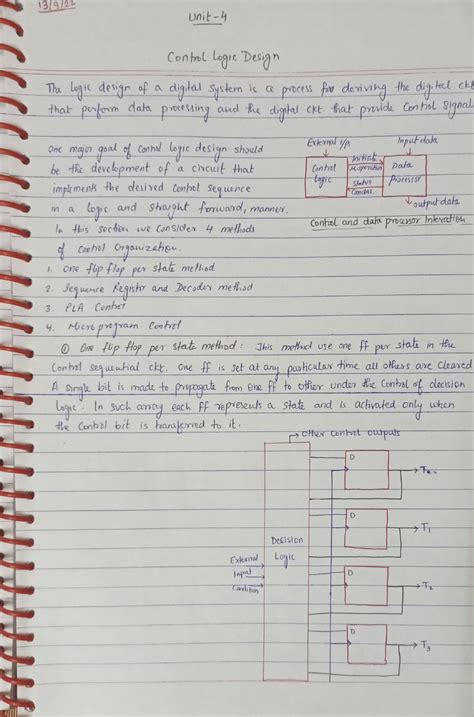 13/9/22
Unit-4
Control Logic Design
The logic design of a digital system is a process for deriving the digital ckt
that perform data processing and the digital ckt that provide Control Signal
One major goal of control logic design should
be the development of a circuit that
implements the desired control sequence
in a logic and straight forward, manner.
In this section we consider 4 methods
of Control Organization.
External i/p
Input data
Control
Logic
Initiate
Status
Data
Processor
output data
Control and data processor Interaction
1. One flip flop per state method
2. Sequence Register and Decoder method
3. PLA Control
4. Microprogram Control
① One flip flop per state method: This method use one ff per state in the
Control sequential ckt. One ff is set at any particular time all others are cleared
A single bit is made to propagate from one ff to other under the Control of decision
logic. In such array each FF represents a state and is activated only when
the Control bit is transferred to it.
other control outputs
External
Input
Condition
Decision
Logic
D
D
T1
D
T2
D
T3